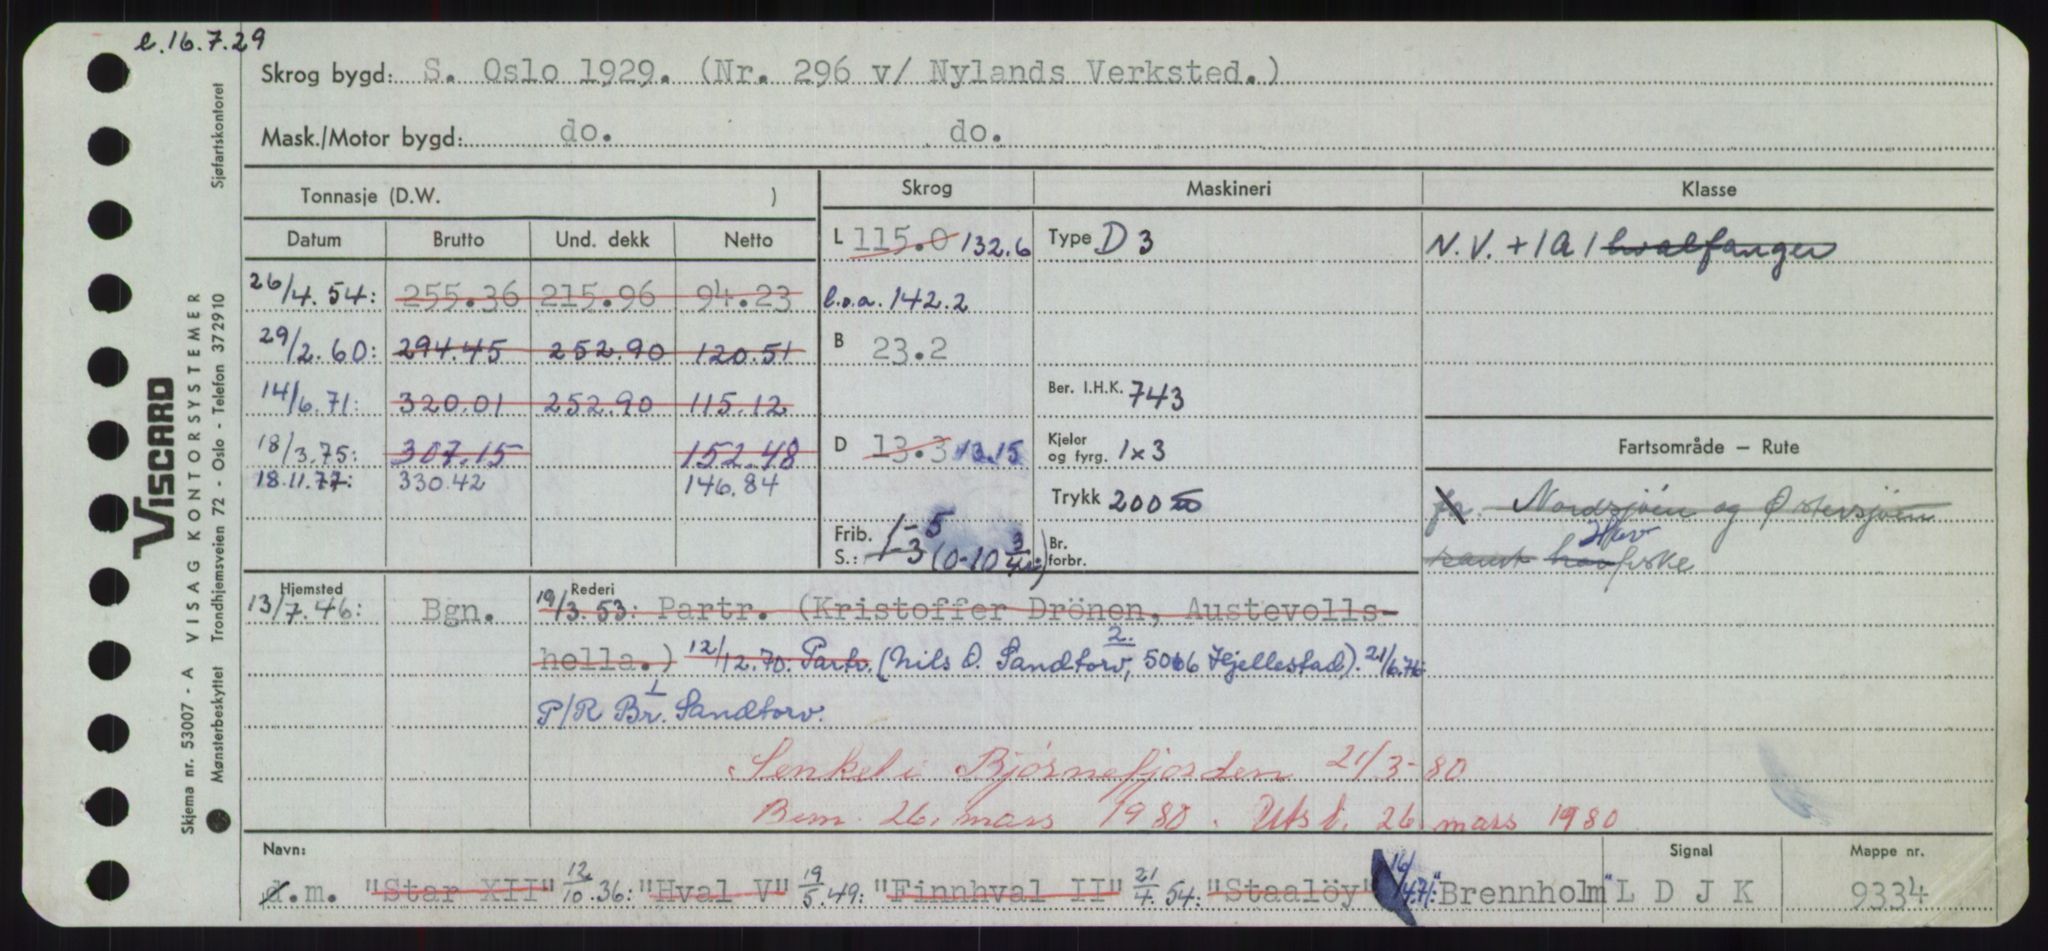 e. 16.7.29
Skrog bygd: S. Oslo 1929. (Nr. 296 v/ Nylands Verksted.)
Mask./Motor bygd: do. do.
Tonnasje (D.W. )
Datum Brutto Und. dekk Netto
26/4.54: 255.36 215.96 94.23
29/2.60: 294.45 252.90 120.51
14/6.71: 320.01 252.90 115.12
18/3.75: 307.15 152.48
18.11.77: 330.42 146.84
Skrog
L 115.0 132.6
l.o.a. 142.2
B 23.2
D 13.3 13.15
Frib. 1-5
S.: 1-3 (0-10 3/4:)
Maskineri
Type D 3
Ber. I.H.K. 743
Kjeler
og fyrg. 1x3
Trykk 200
Br.
forbr.
Klasse
N.V. + 1A1 hvalfanger
Fartsområde — Rute
fr. Nordsjöen og Østersjöen
Hav
samt havfiske
Hjemsted
13/7.46: Bgn.
Rederi
19/3.53: Partr. (Kristoffer Drönen, Austevolls-
hella.) 12/12.70: Partr. (Nils O. Sandtorv, 2. 5066 Hjellestad). 21/6.76:
P/R Br. 1 Sandtorv.
Senket i Bjørnefjorden 21/3-80
Bem. 26. mars 1980. Utst. 26 mars 1980
Navn:
d.m. "Star XII" 12/10.36: "Hval V" 19/5.49: "Finnhval II" 21/4.54: "Staalöy" 16/4.71: "Brennholm"
Signal
L D J K
Mappe nr.
9334
VISCARD
Skjema nr. 53007 - A VISAG KONTORSYSTEMER
Mønsterbeskyttet Trondhjemsveien 72 - Oslo - Telefon 372910 Sjøfartskontoret